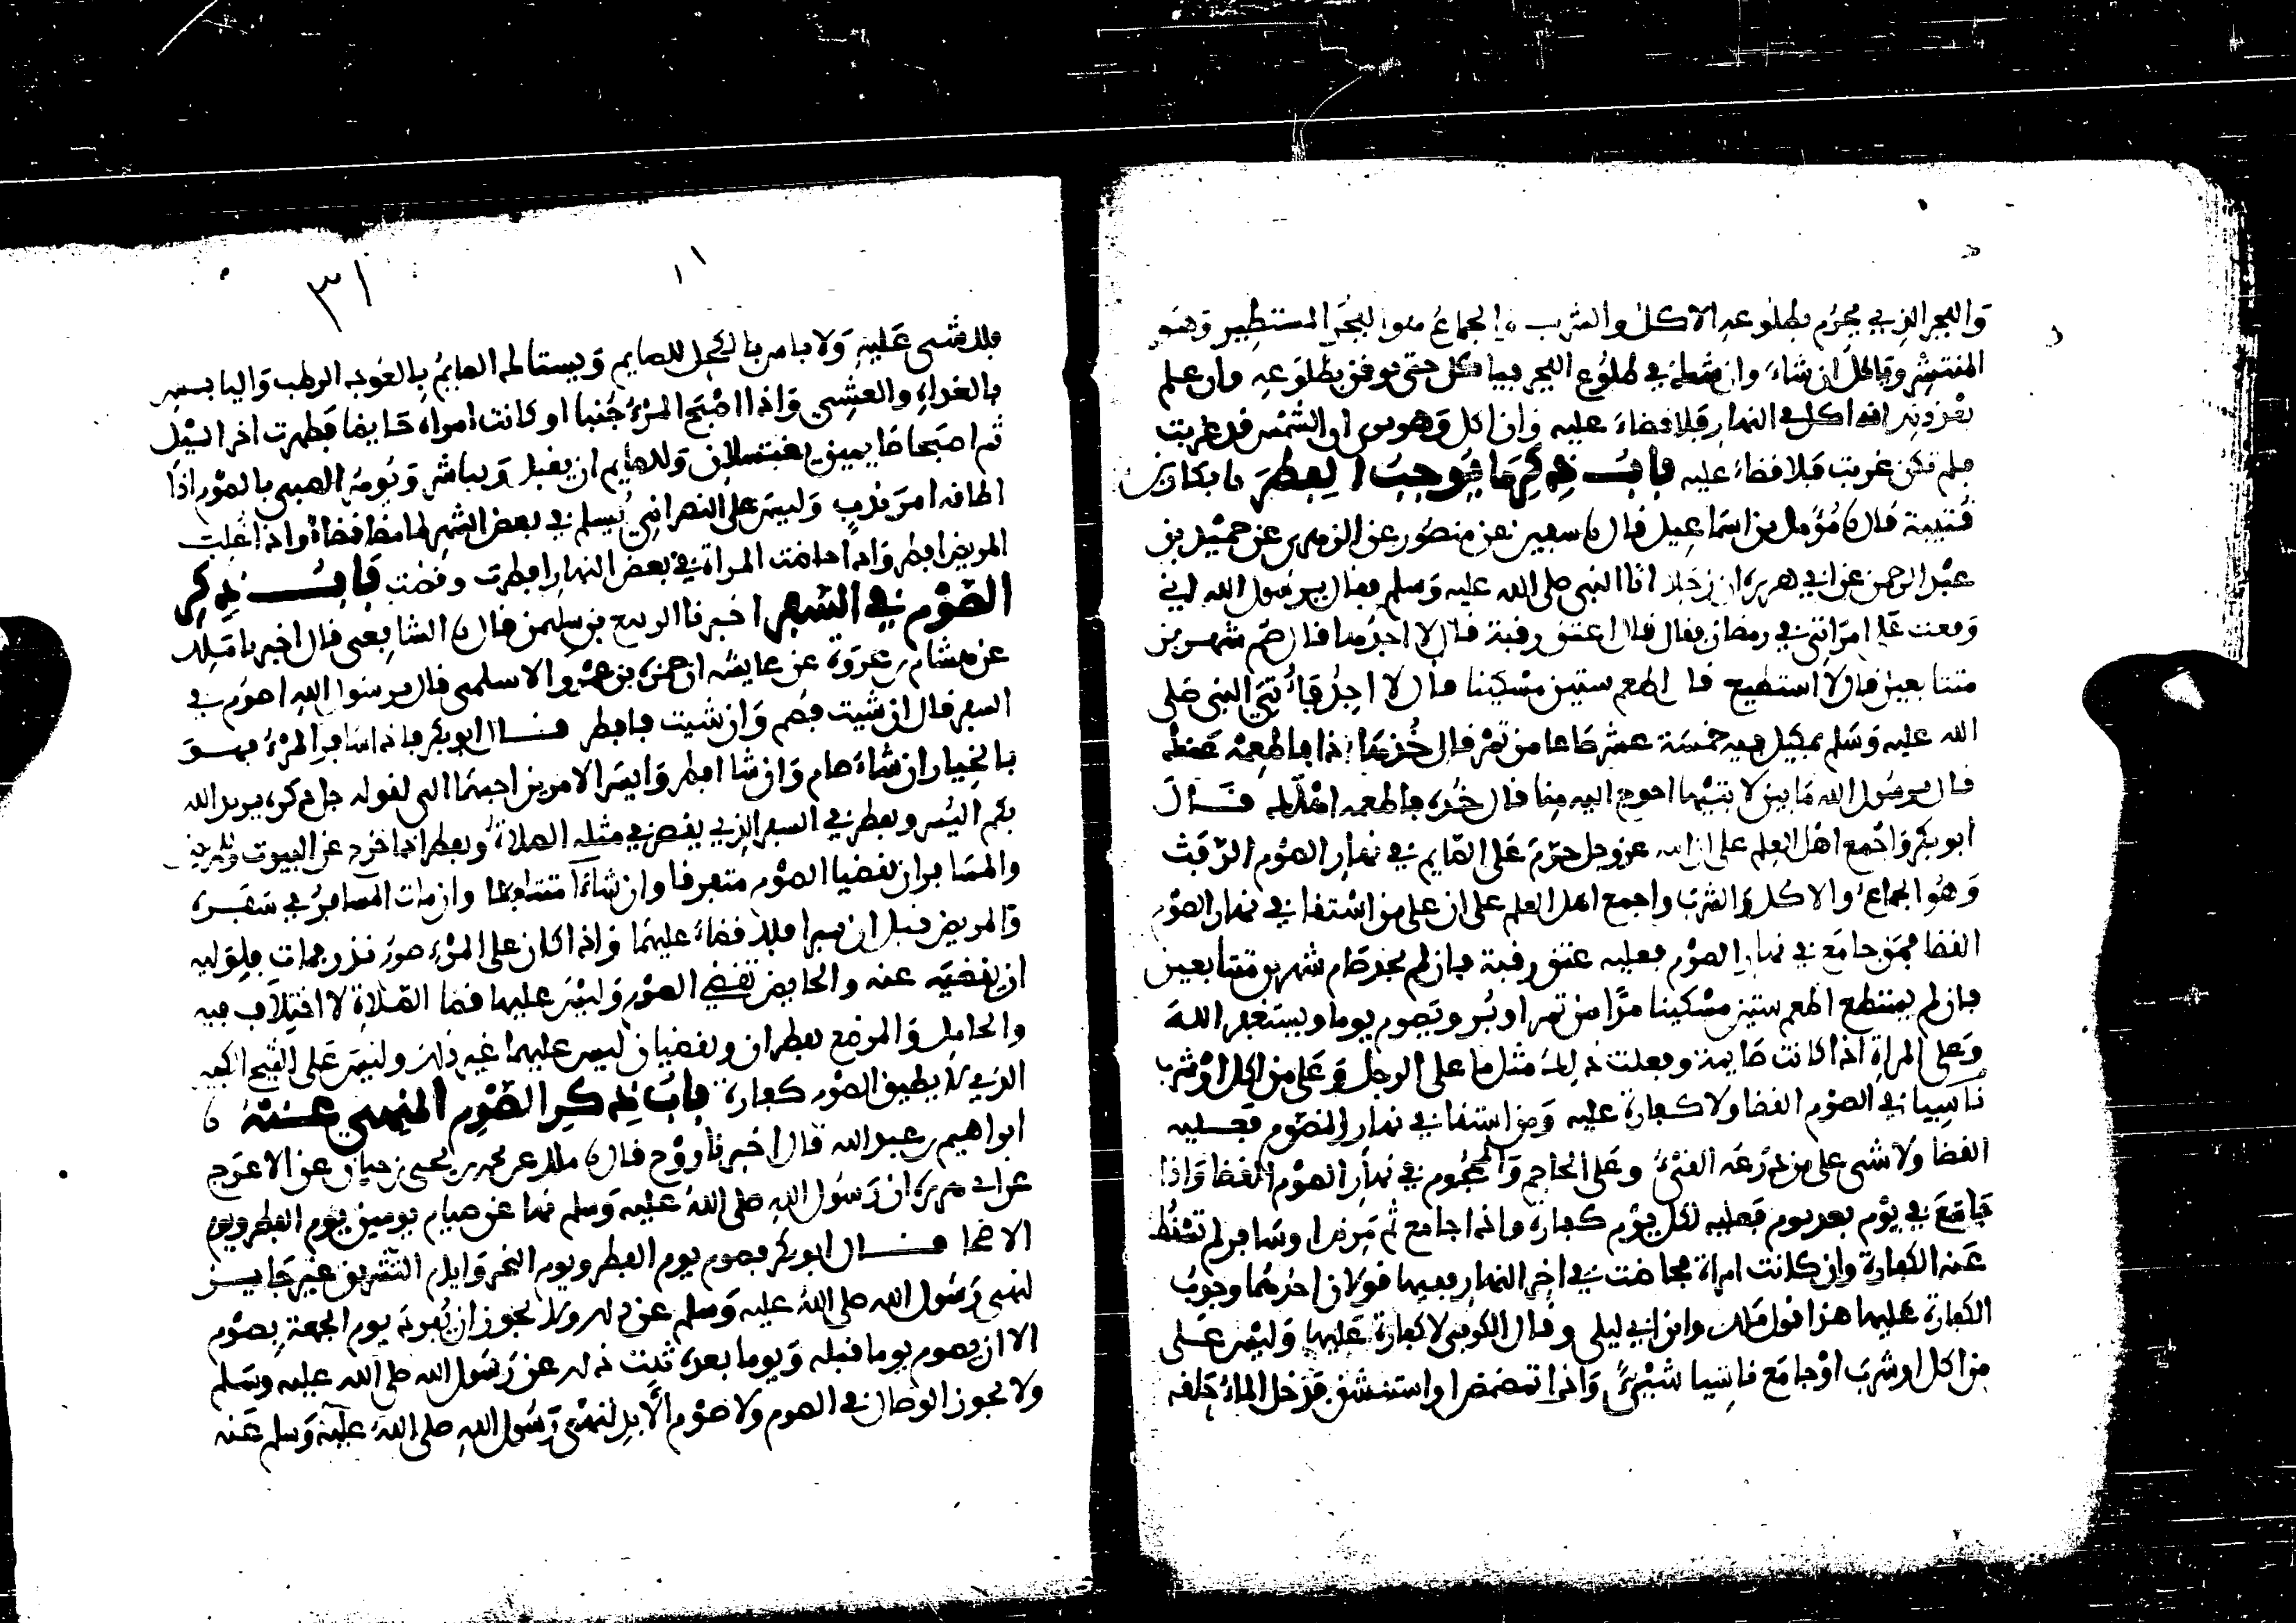 والفجر الذي يحرم بطلوعه الاكل والشرب والجماع هو الفجر المستطير وهو
المنتشر وياكل ان شاء وان شك في طلوع الفجر فياكل حتى يوقن بطلوعه وان علم
بعد ذلك انه اكل في النهار فلا قضاء عليه وان اكل وهو يرى ان الشمس قد غربت
فلم تكن غربت فلا قضاء عليه باب ذكر ما يوجب الفطر نا بكار بن
قتيبة قال نا مؤمل بن اسماعيل قال نا سفين عن منصور عن الزهري عن حميد بن
عبد الرحمن عن ابي هريرة ان رجلا اتا النبي صلى الله عليه وسلم فقال يرسول الله اني
وقعت على امراتي في رمضان فقال قال اعتق رقبة قال لا اجدها قال صم شهرين
متتابعين قال لا استطيع قال اطعم ستين مسكينا قال لا اجد فاتي النبي صلى
الله عليه وسلم بمكيل فيه خمسة عشر صاعا من تمر قال خذ هذا فاطعمه عنك
قال يرسول الله ما بين لابتيها احوج اليه منا قال خذه فاطعمه اهلك قال
ابو بكر واجمع اهل العلم على ان الله عز وجل حرم على الصايم في نهار الصوم الرفث
وهو الجماع والاكل والشرب واجمع اهل العلم على ان على من استقا في نهار الصوم
القضا فمن جامع في نهار الصوم فعليه عتق رقبة فان لم يجد صام شهرين متتابعين
فان لم يستطع اطعم ستين مسكينا مدا من تمر او بر ويصوم يوما ويستغفر الله
وعلى المراة اذا كانت صايمة وفعلت ذلك مثل ما على الرجل وعلى من اكل او شرب
ناسيا في الصوم القضا ولا كفارة عليه ومن استقا في نهار الصوم فعليه
القضا ولا شي على من ذرعه القيء وعلى الحاجم والمحجوم في نهار الصوم القضا واذا
جامع في يوم بعد يوم فعليه لكل يوم كفارة واذا جامع ثم مرض او سافر لم تسقط
عنه الكفارة وان كانت امراة فحاضت في اخر النهار ففيها قولان احدهما وجوب
الكفارة عليها هذا قول ملك وابن ابي ليلى وقال الكوفي لا كفارة عليها وليس على
من اكل او شرب او جامع ناسيا شيء واذا تمضمض او استنشق فدخل الماء حلقه
١١
٣١
فلا شي عليه ولا باس بالكحل للصايم ويستاك الصايم بالعود الرطب واليابس
بالغداة والعشي واذا اصبح المرء جنبا او كانت امراة حايضا فطهرت اخر الليل
ثم اصبحا صايمين يغتسلان وللصايم ان يقبل ويباشر ويومر الصبي بالصوم اذا
اطاقه امر ندب وليس على النصراني يسلم في بعض الشهر لما مضا قضاء واذا غلب
المريض افطر واذا حاضت المراة في بعض النهار افطرت وقضت باب ذكر
الصوم في السفر اخبرنا الربيع بن سليمن قال نا الشافعي قال اخبرنا ملك
عن هشام بن عروة عن عايشة ان حمزة بن عمرو الاسلمي قال يرسول الله اصوم في
السفر قال ان شيت فصم وان شيت فافطر قال ابو بكر فاذا سافر المرء فهو
بالخيار ان شاء صام وان شا افطر وايسر الامرين احبهما الي لقوله جل ذكره يريد الله
بكم اليسر ويفطر في السفر الذي يقصر في مثله الصلاة ويفطر اذا خرج عن البيوت وللمريض
والمسافر ان يقضيا الصوم متفرقا وان شاءا متتابعا وان مات المسافر في سفره
والمريض قبل ان يبرا فلا قضاء عليهما واذا كان على المرء صوم نذر فمات فلوليه
ان يقضيه عنه والحايض تقضي الصوم وليس عليها قضا الصلاة لا اختلاف فيه
والحامل والمرضع يفطران ويقضيان ليس عليهما غير ذلك وليس على الشيخ الكبير
الذي لا يطيق الصوم كفارة باب ذكر الصوم المنهي عنه نا
ابراهيم بن عبد الله قال اخبرنا روح قال نا ملك عن محمد بن يحيى بن حبان عن الاعرج
عن ابي هريرة ان رسول الله صلى الله عليه وسلم نها عن صيام يومين يوم الفطر ويوم
الاضحا قال ابو بكر فصوم يوم الفطر ويوم النحر وايام التشريق غير جايز
لنهي رسول الله صلى الله عليه وسلم عن ذلك ولا يجوز ان يفرد يوم الجمعة بصوم
الا ان يصوم يوما قبله ويوما بعده ثبت ذلك عن رسول الله صلى الله عليه وسلم
ولا يجوز الوصال في الصوم ولا صوم الابد لنهي رسول الله صلى الله عليه وسلم عنه